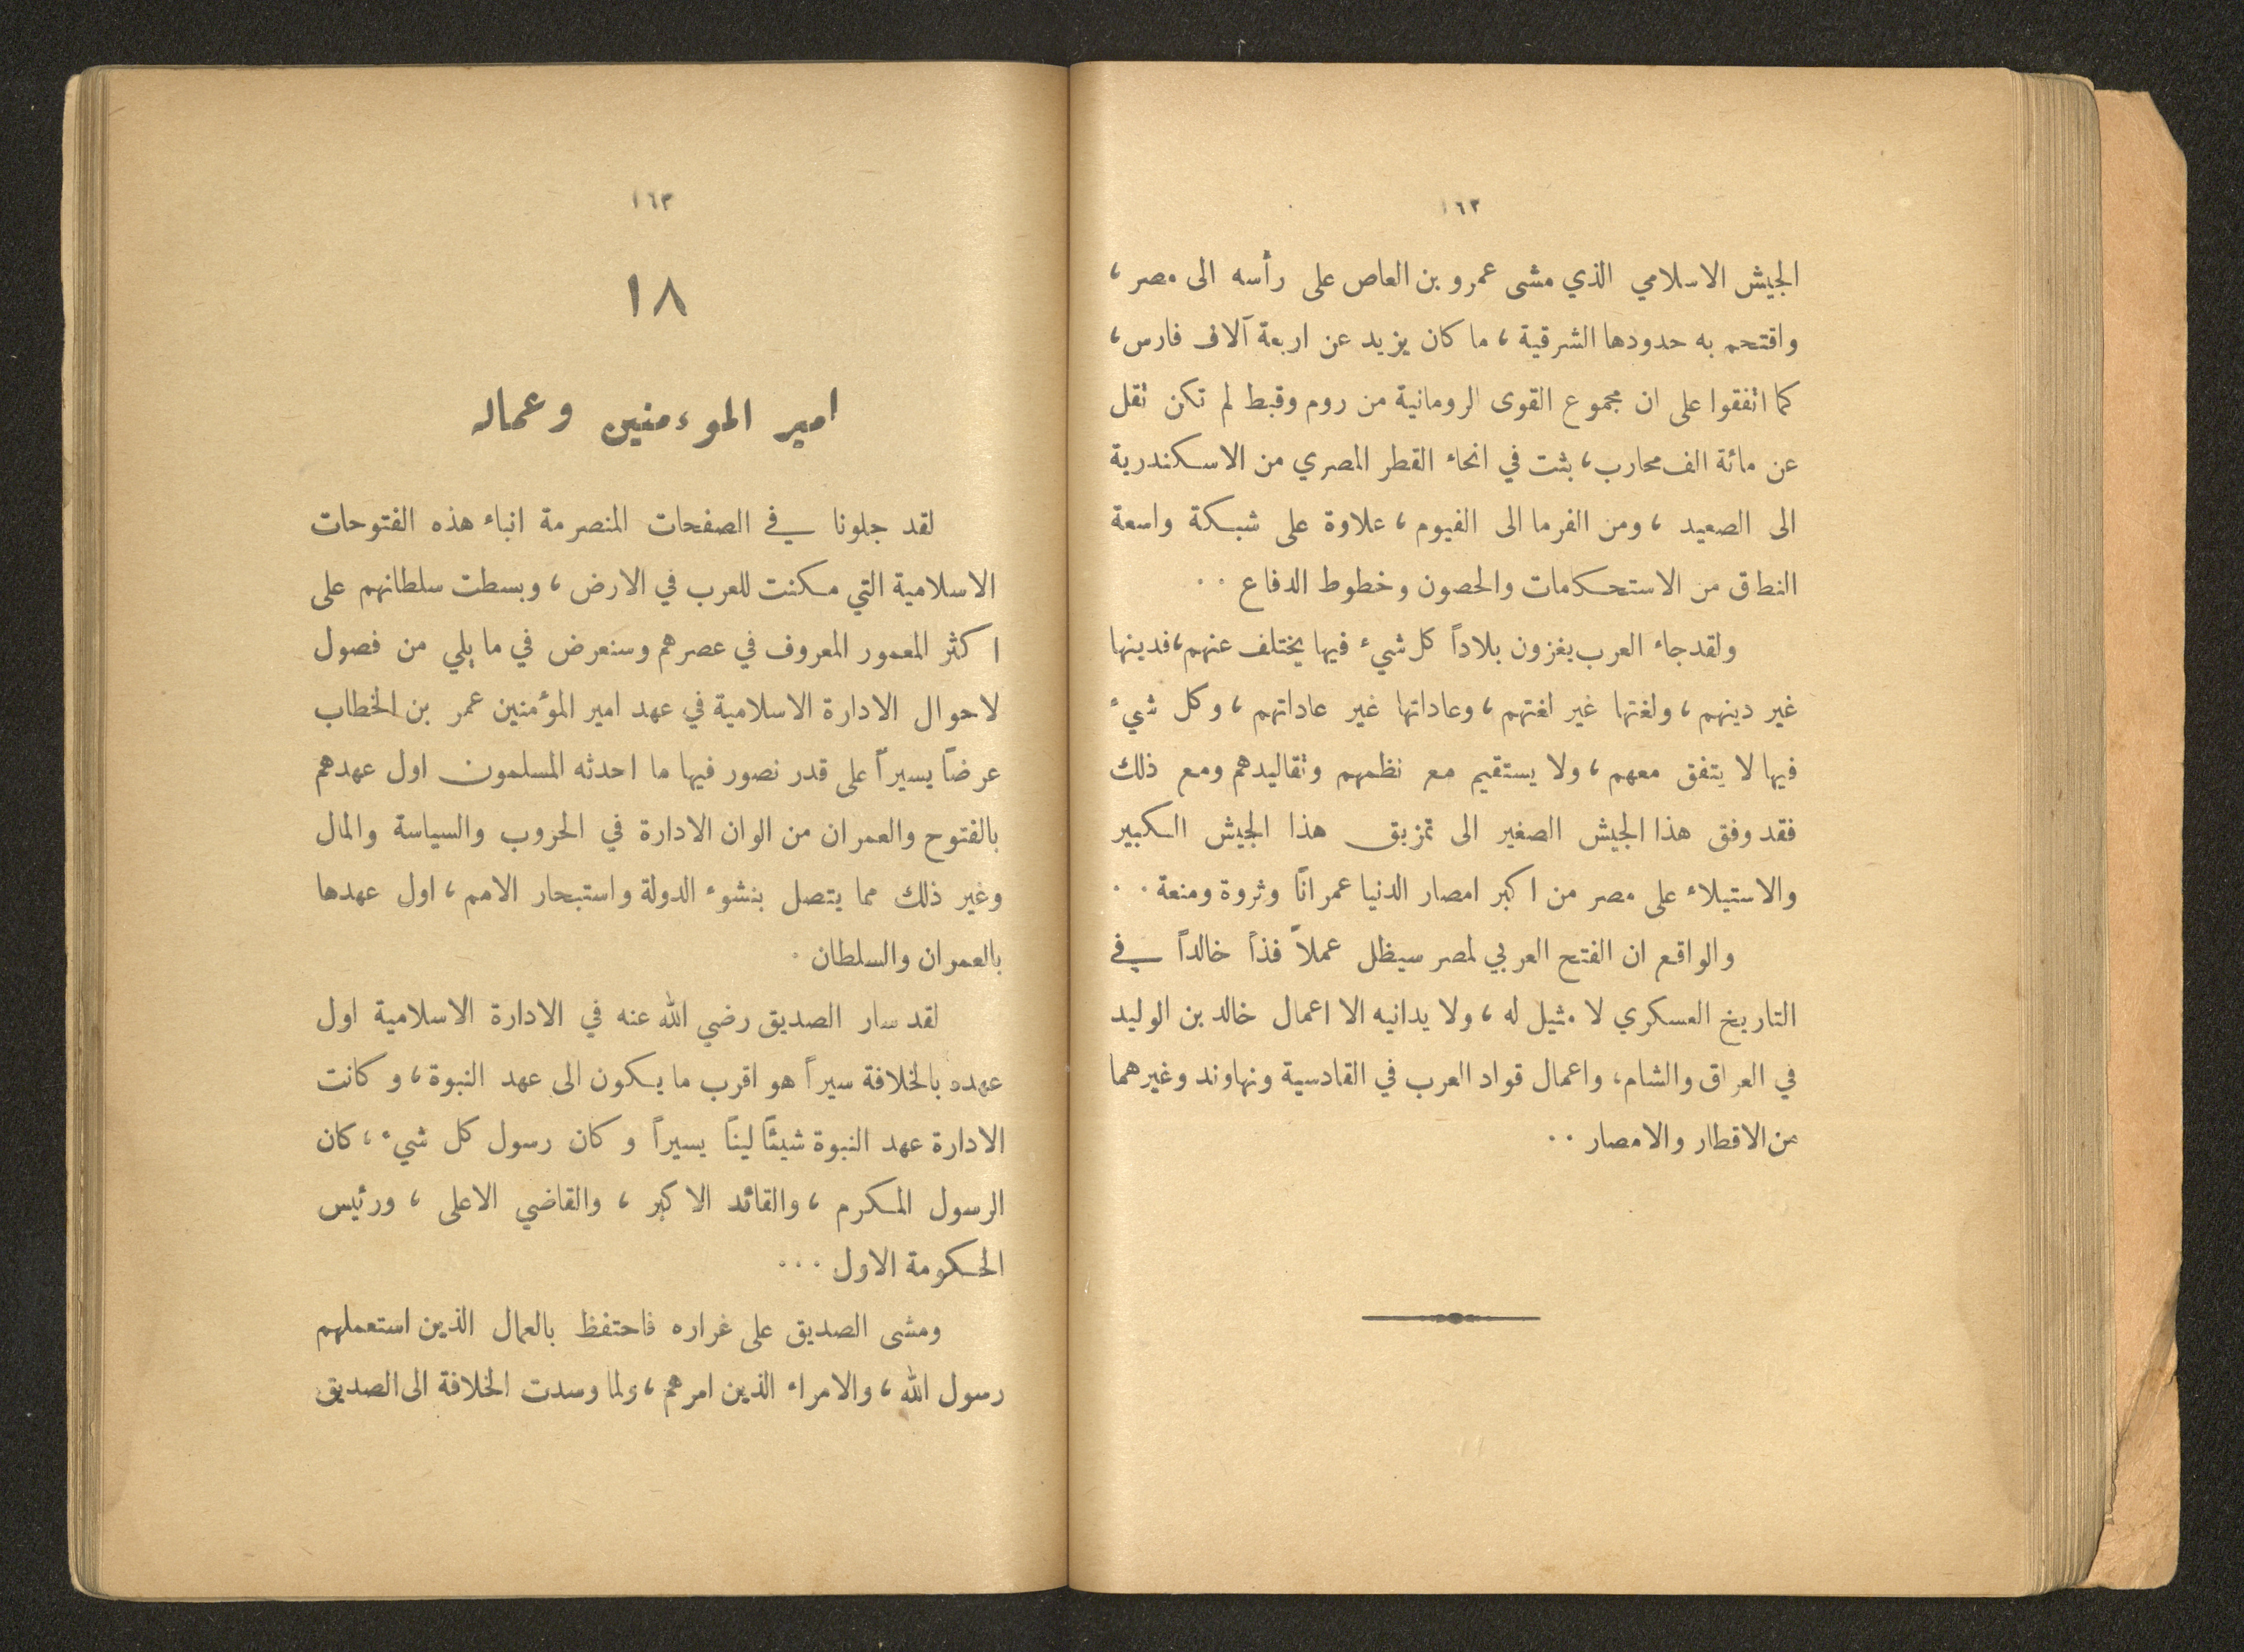 ١٦٢
الجيش الاسلامي الذي مشى عمرو بن العاص على رأسه الى مصر ،
واقتحم به حدودها الشرقية ، ما كان يزيد عن اربعة آلاف فارس ،
كما اتفقوا على ان مجموع القوى الرومانية من روم وقبط لم تكن تقل
عن مائة الف محارب ، بثت في انحاء القطر المصري من الاسكندرية
الى الصعيد ، ومن الفرما الى الفيوم ، علاوة على شبكة واسعة
النطاق من الاستحكامات والحصون وخطوط الدفاع ٠٠
ولقد جاء العرب يغزون بلاداً كل شيء فيها يختلف عنهم ، فدينها
غير دينهم ، ولغتها غير لغتهم ، وعاداتها غير عاداتهم ، وكل شيء
فيها لا يتفق معهم ، ولا يستقيم مع نظمهم وتقاليدهم ومع ذلك
فقد وفق هذا الجيش الصغير الى تمزيق هذا الجيش الكبير
والاستيلاء على مصر من اكبر امصار الدنيا عمراناً وثروة ومنعة ٠٠
والواقع ان الفتح العربي لمصر سيظل عملاً فذاً خالداً في
التاريخ العسكري لا مثيل له ، ولا يدانيه الا اعمال خالد بن الوليد
في العراق والشام ، واعمال قواد العرب في القادسية ونهاوند وغيرهما
من الاقطار والامصار ٠٠
١٦٣
١٨
امير الموءمنين وعماله
لقد جلونا في الصفحات المنصرمة انباء هذه الفتوحات
الاسلامية التي مكنت للعرب في الارض ، وبسطت سلطانهم على
اكثر المعمور المعروف في عصرهم وسنعرض في ما يلي من فصول
لاحوال الادارة الاسلامية في عهد امير المؤمنين عمر بن الخطاب
عرضاً يسيراً على قدر نصور فيها ما احدثه المسلمون اول عهدهم
بالفتوح والعمران من الوان الادارة في الحروب والسياسة والمال
وغير ذلك مما يتصل بنشوء الدولة واستبحار الامم ، اول عهدها
بالعمران والسلطان ٠
لقد سار الصديق رضي الله عنه في الادارة الاسلامية اول
عهده بالخلافة سيراً هو اقرب ما يكون الى عهد النبوة ، وكانت
الادارة عهد النبوة شيئاً ليناً يسيراً وكان رسول كل شيء ، كان
الرسول المكرم ، والقائد الاكبر ، والقاضي الاعلى ، ورئيس
الحكومة الاول ٠٠٠
ومشى الصديق على غراره فاحتفظ بالعمال الذين استعملهم
رسول الله ، والامراء الذين امرهم ، ولما وسدت الخلافة الى الصديق